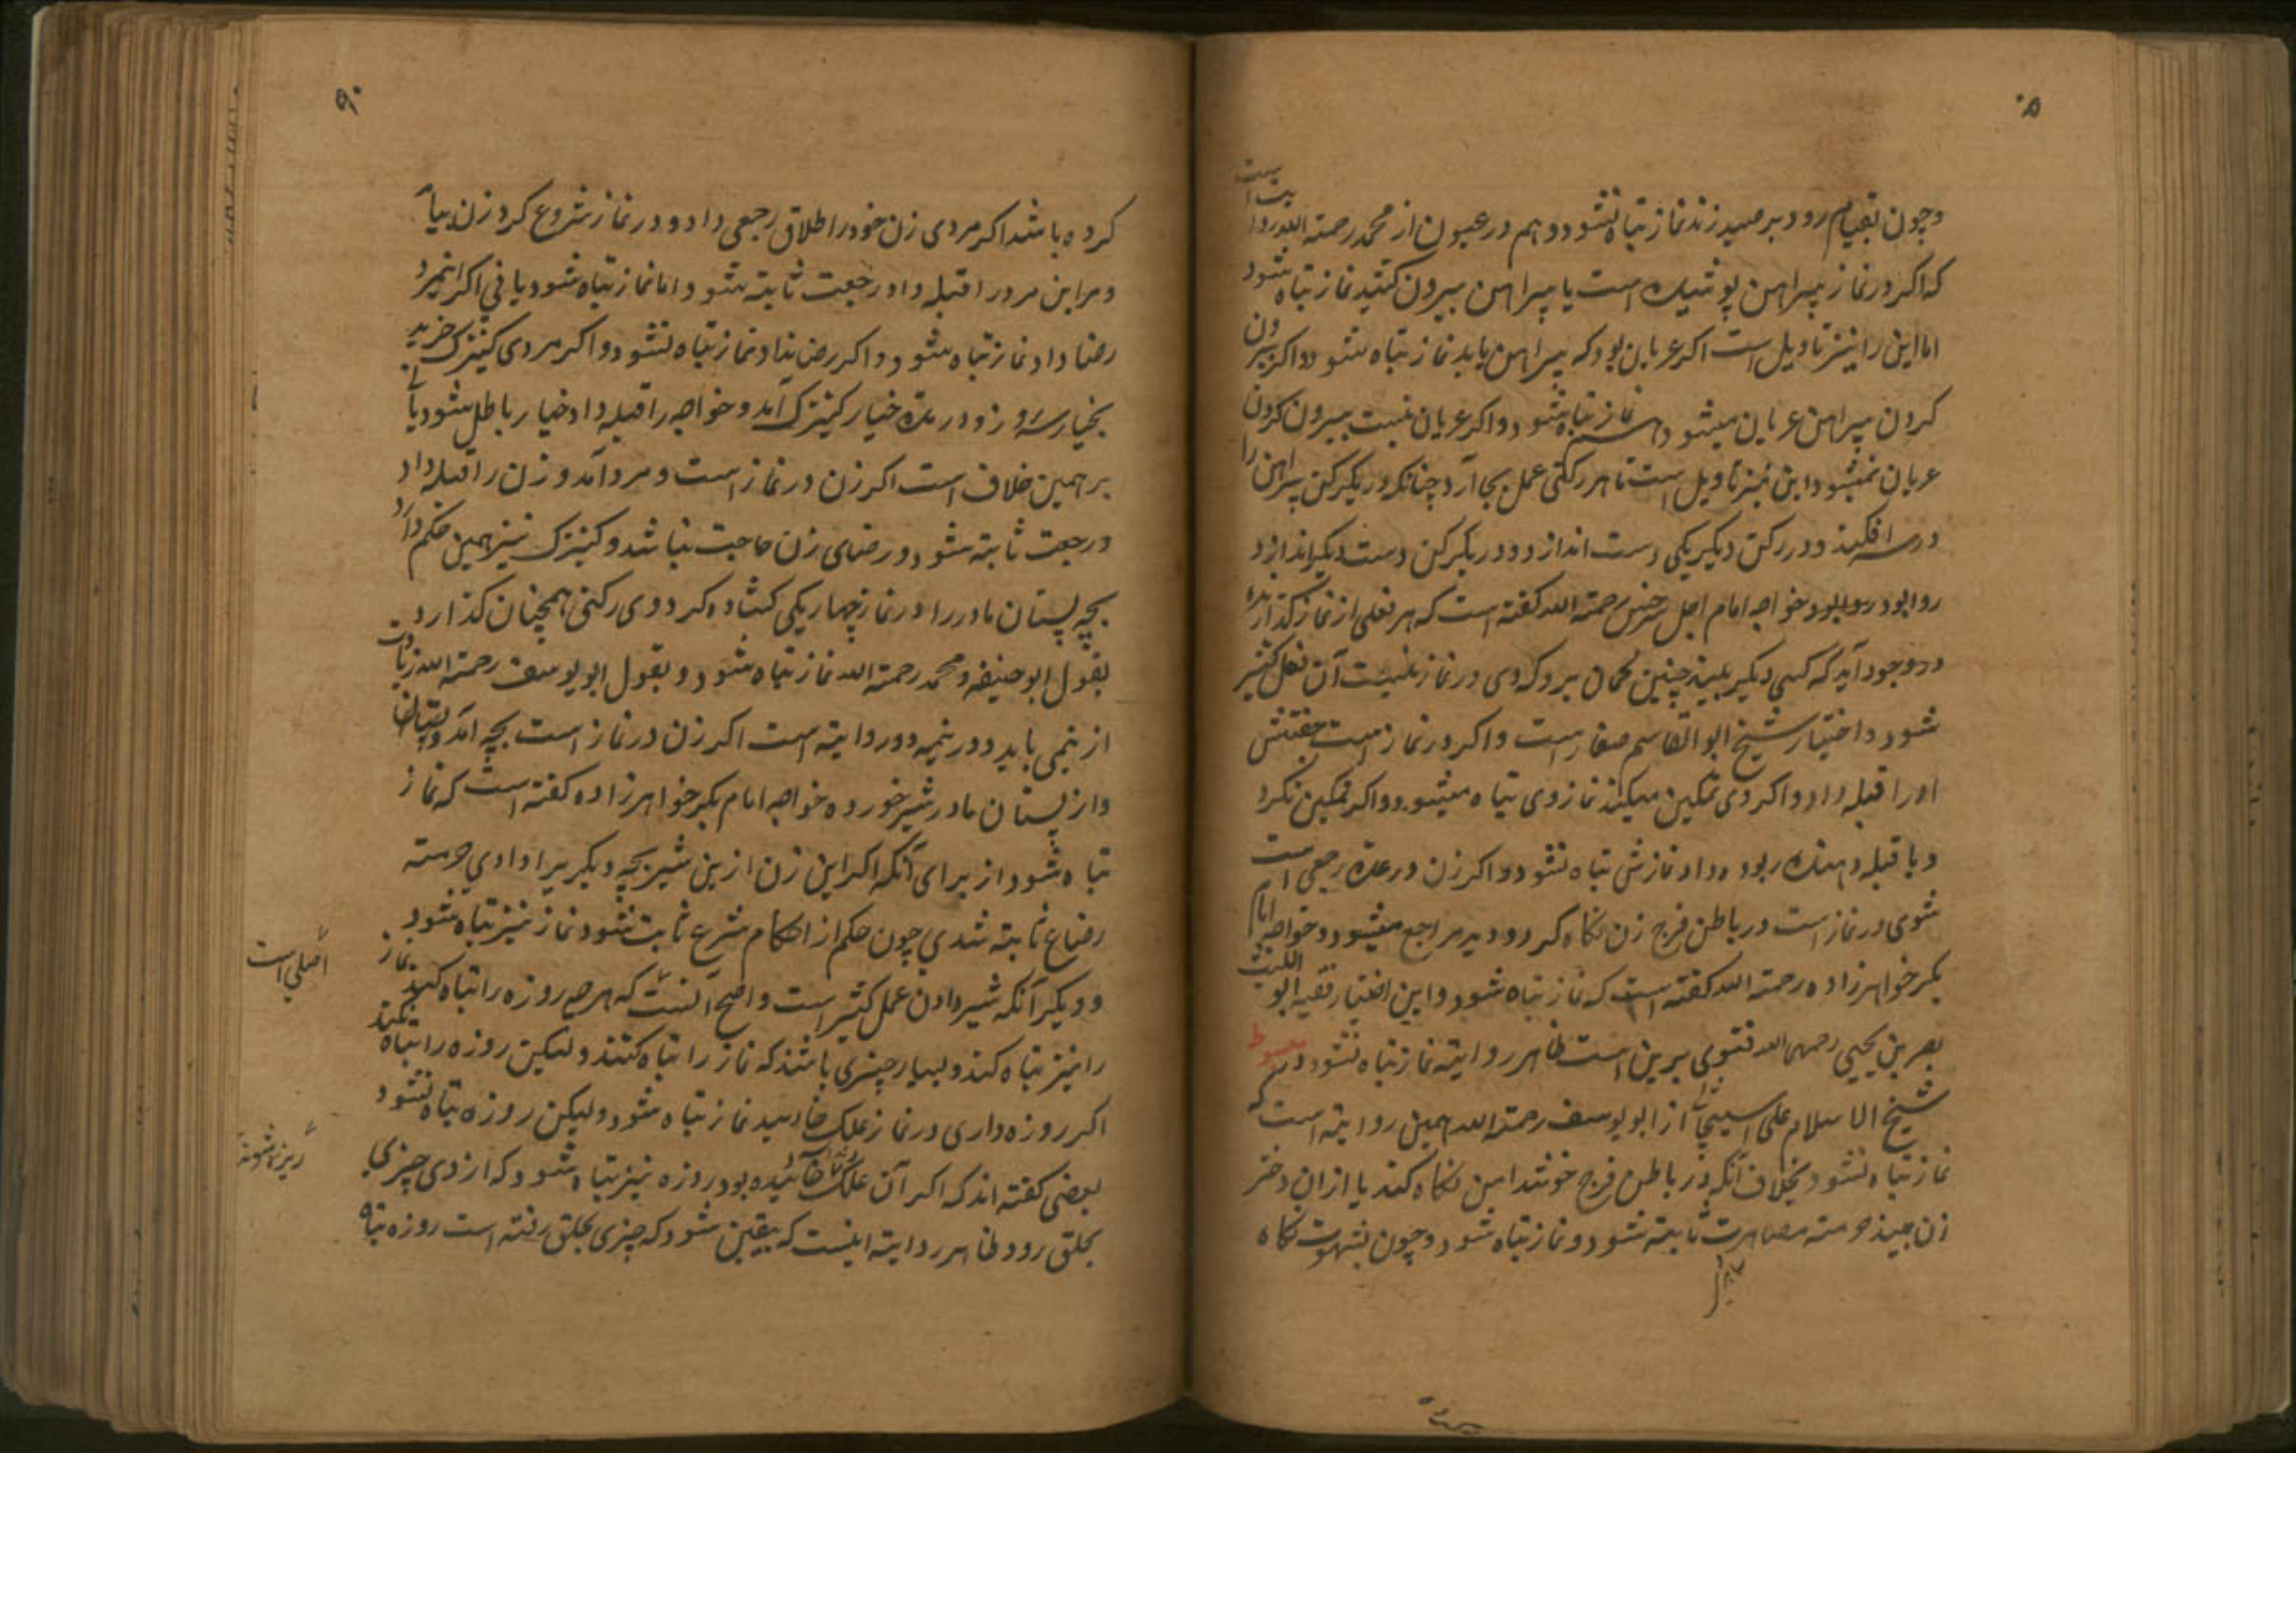 وچون بقیام رود برمید زند نماز تباه نشود و هم در عیون از محمد رحمة الله روایت است
که اکر در نماز پیراهن پوشیده است یا پیراهن بیرون کشید نماز تباه شود
اما این را نیز تاویل است اکر عریان بود که پیراهن یابد نماز تباه شود و اکر بیرون
کردن پیراهن عریان میشود هم نماز تباه شود و اکر عریان نیست بیرون کردن
عریان نمیشود این نیز تاویل است تا هر رکنی عمل بجا آرد چنانکه در یکرکن پیراهن را
در سر افکند و در رکن دیکر یکی دست اندازد و در یکرکن دست دیکر اندازد
روا بود خواجه امام اجل رحمة الله کفته است که هر فعلی از نماز کذارنده
در وجود آید که کسی دیکر بیند چنین کمان برد که وی در نماز نیست آن فعل کثیر
شود و اختیار شیخ ابو القاسم صفار است و اکر در نماز است جفتش
او را قبله داد و اکر وی تمکین میکند نماز وی تباه میشود و اکر تمکین نکرد
و یا قبله ربوده داد نمازش تباه نشود و اکر زن در عدة رجعی است
شوی در نماز است در باطن فرج زن نکاه کرد و دید مراجع میشود و خواجه امام
بکر خواهرزاده رحمة الله کفته است که نماز تباه شود و این اختیار فقیه ابو اللیث
یحیی رحمهم الله فتوی برین است ظاهر روایة نماز تباه نشود در مبسوط
شیخ الاسلام علی اسبیجابی از ابو یوسف رحمة الله همین روایة است که
نماز تباه نشود بخلاف آنکه در باطن فرج نکاه کند یا ازان دختر
زن بیند حرمته مصاهرت ثابته نشود و نماز تباه شود و چون بشهوت نکاه
کرده باشد اکر مردی زن خود را طلاق رجعی داد و در نماز شروع کرد زن بیامد
و مر این مرد را قبله داد رجعت ثابته شود اما نماز تباه شود یا نی اکر اینمرد
رضا داد نماز تباه شود و اکر رضا نداد نماز تباه نشود و اکر مردی کنیزک خرید
بخیار سه روز و در مدة خیار کنیزک آمد و خواجه را قبله داد خیار باطل شود یا نی
بر همین خلاف است اکر زن در نماز است و مرد آمد و زن را قبله داد
و رجعت ثابته شود و رضای زن حاجت نباشد و کنیزک نیز همین حکم دارد
بچه پستان مادر را در نماز چهار یکی کشاده کرد وی رکنی همچنان کذارد
بقول ابو حنیفه و محمد رحمة الله نماز تباه شود و بقول ابو یوسف رحمة الله زیادت
از نیمی باید و در نیمه دو روایته است اکر زن در نماز است بچه آمد و پستان
و از پستان مادر شیر خورد خواجه امام بکر خواهرزاده کفته است که نماز
تباه شود از برای آنکه اکر این زن ازین شیر بچه دیکر را دادی حرمته
رضاع ثابته شدی چون حکم از احکام شرع ثابت شود نماز نیز تباه شود
و دیکر آنکه شیر دادن عمل کثیر است و اصح آنست که هر چه روزه را تباه کند نماز
را نیز تباه کند و بسیار چیزی باشند که نماز را تباه کنند ولیکن روزه را تباه نکند
اکر روزه داری در نماز علک خایید نماز تباه شود ولیکن روزه تباه نشود
بعضی کفته اند که اکر آن علک خاییده بود روزه نیز تباه شود که از وی چیزی
بحلق رود ظاهر روایته اینست که یقین شود که چیزی بحلق رفته است روزه تباه
اصلی است